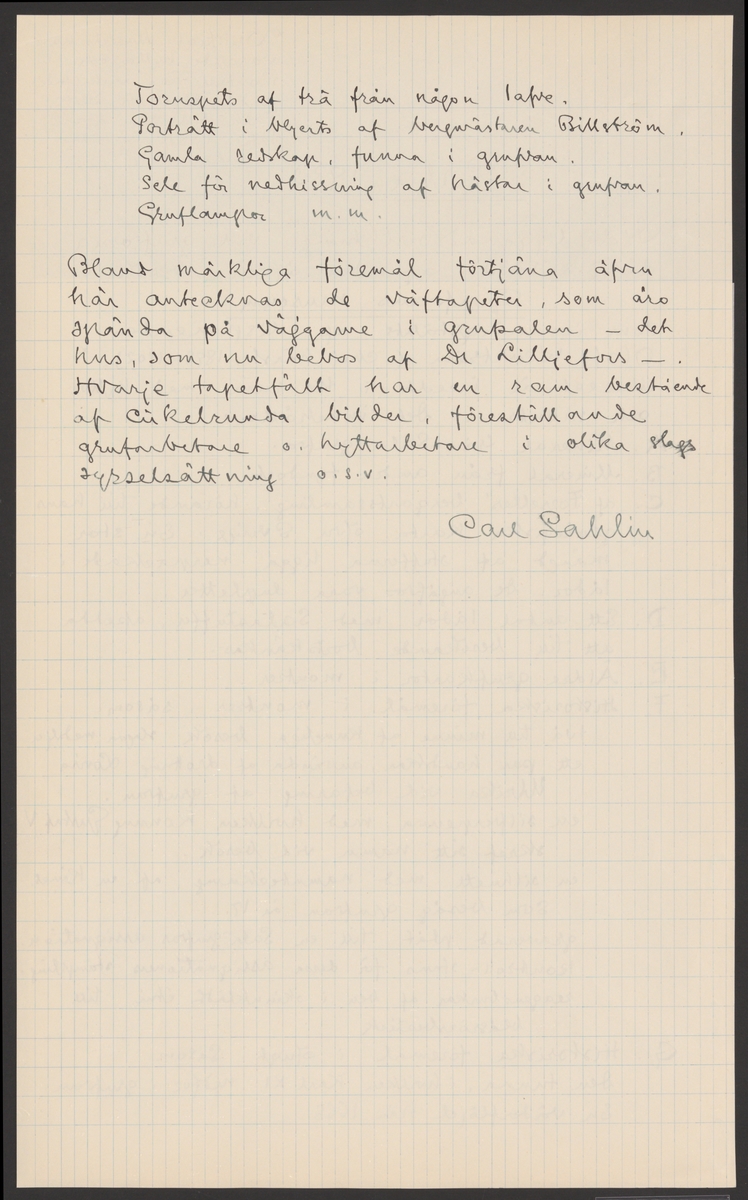 Tornspets af trä från någon lafve.
Porträtt i blyerts af bergmästaren Billström.
Gamla redskap, funna i grufvan.
Sele för nedhissning af hästar i grufvan.
Gruflampor m.m.
Bland märkliga föremål förtjäna äfven
här antecknas de väftapeter, som äro
spända på väggarne i grufsalen – det
hus, som nu bebos af Dr Lilljefors –.
Hvarje tapetfält har en ram bestående
af cirkelrunda bilder, föreställande
grufarbetare o. hyttarbetare i olika slags
sysselsättning o.s.v.
Carl Sahlin